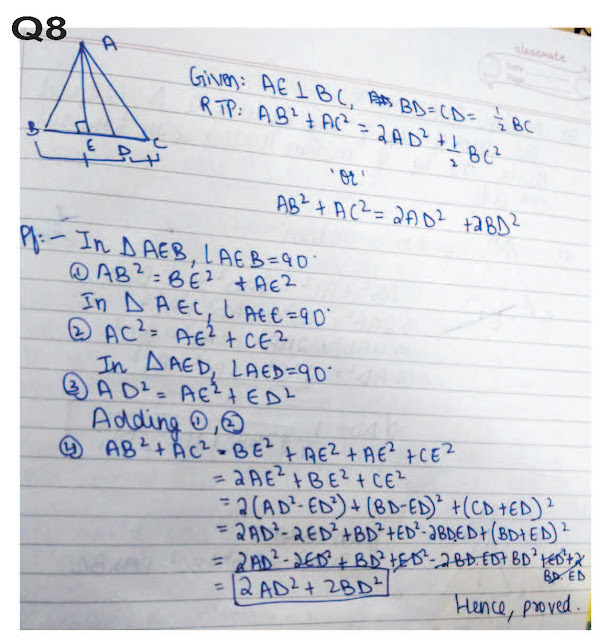 Q8
classmate
Date
Page
A
B
E
D
C
Given: AE ⊥ BC, BD = CD = 1/2 BC
RTP: AB² + AC² = 2AD² + 1/2 BC²
'or'
AB² + AC² = 2AD² + 2BD²
Pf:- In △AEB, ∠AEB = 90°
① AB² = BE² + AE²
In △AEC, ∠AEC = 90°
② AC² = AE² + CE²
In △AED, ∠AED = 90°
③ AD² = AE² + ED²
Adding ①, ②
④ AB² + AC² = BE² + AE² + AE² + CE²
= 2AE² + BE² + CE²
= 2(AD² - ED²) + (BD - ED)² + (CD + ED)²
= 2AD² - 2ED² + BD² + ED² - 2BD.ED + (BD + ED)²
= 2AD² - 2ED² + BD² + ED² - 2BD.ED + BD² + ED² + 2
BD.ED
= 2AD² + 2BD²
Hence, proved.